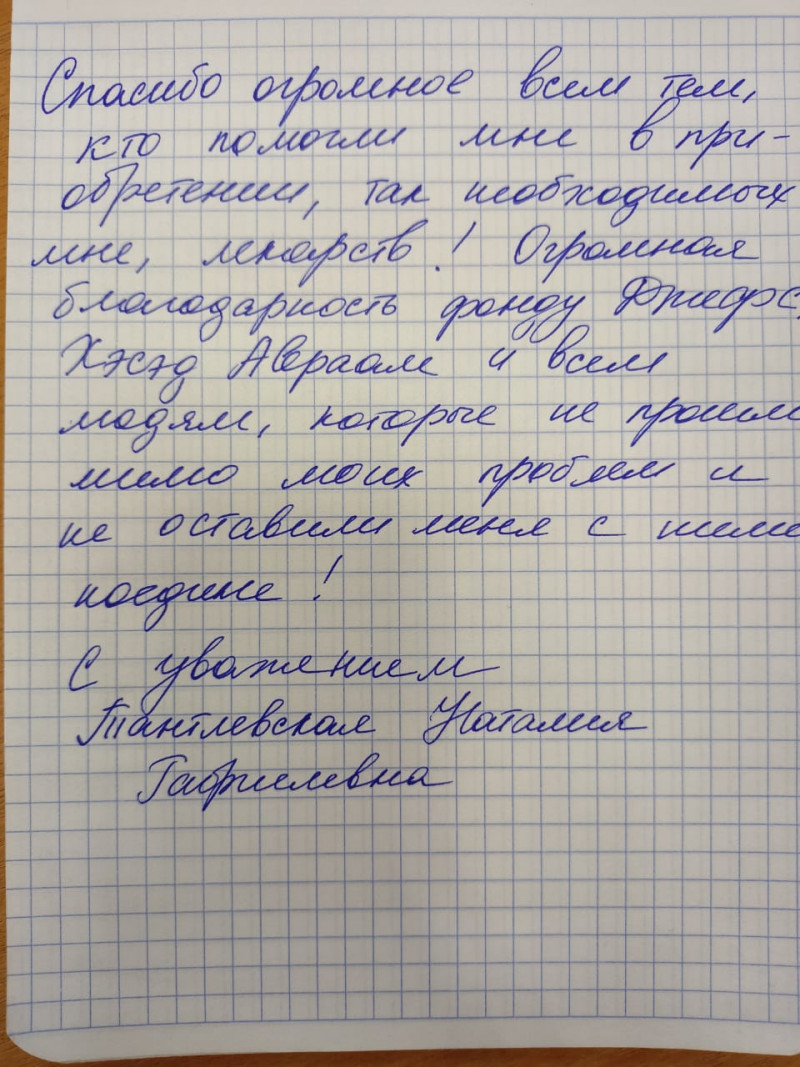 Спасибо огромное всем тем,
кто помогли мне в при-
обретении, так необходимых
мне, лекарств! Огромная
благодарность фонду Джефс,
Хэсэд Авраам и всем
людям, которые не прошли
мимо моих проблем и
не оставили меня с ними
наедине!
С уважением
Тантлевская Наталия
Габриелевна